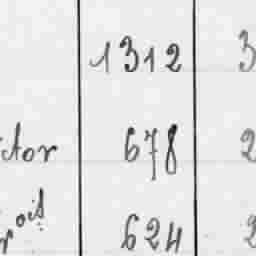 1312 3
ctor 678 2
rois 624 2